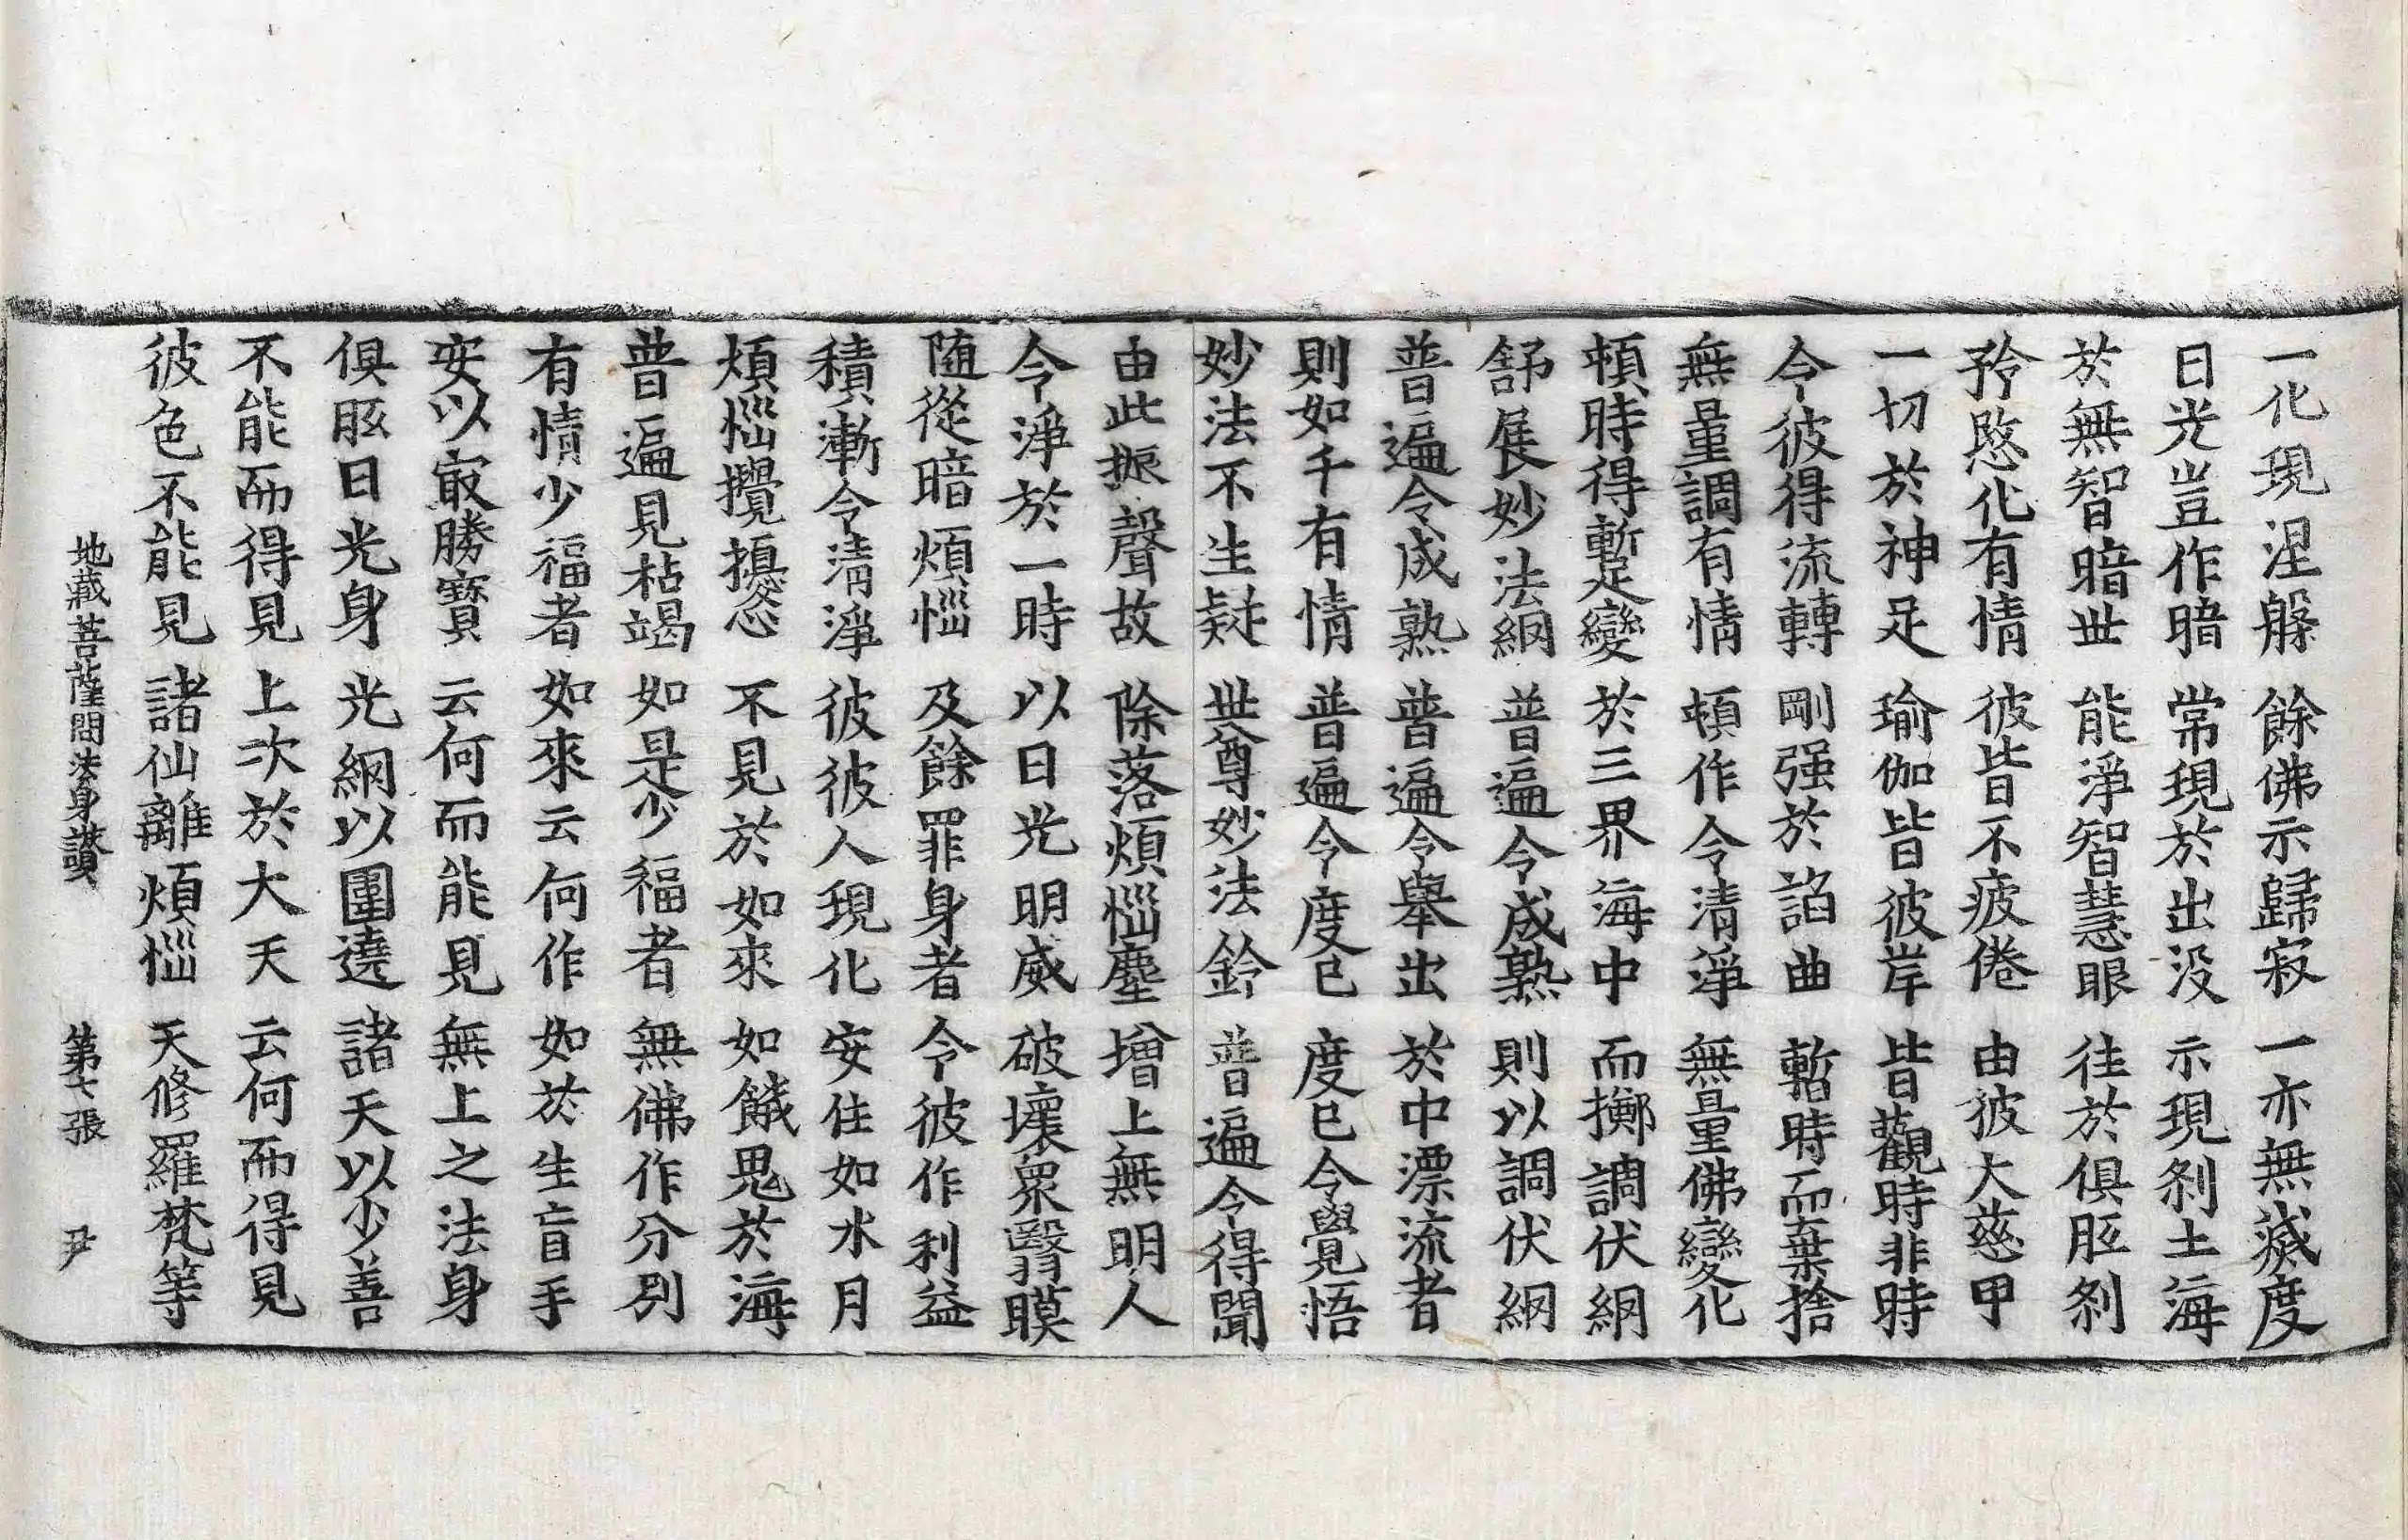 一化現涅槃 餘佛示歸寂 一亦無滅度
日光豈作暗 常現於出没 示現刹土海
於無智暗世 能淨智慧眼 徃於俱胝刹
矜愍化有情 彼皆不疲倦 由彼大慈甲
一切於神足 瑜伽皆彼岸 皆觀時非時
令彼得流轉 剛强於諂曲 暫時而棄捨
無量調有情 頓作令清淨 無量佛變化
頓時得蹔變 於三界海中 而擲調伏網
舒展妙法網 普遍令成熟 則以調伏網
普遍令成熟 普遍令舉出 於中漂流者
則如千有情 普遍令度已 度已令覺悟
妙法不生疑 世尊妙法鈴 普遍令得聞
由此振聲故 除落煩惱塵 增上無明人
令淨於一時 以日光明威 破壞衆翳瞙
随從暗煩惱 及餘罪身者 令彼作利益
積漸令清淨 彼彼人現化 安住如水月
煩惱攪擾心 不見於如來 如餓鬼於海
普遍見枯竭 如是少福者 無佛作分別
有情少福者 如來云何作 如於生盲手
安以㝡勝寳 云何而能見 無上之法身
俱胝日光身 光網以圍遶 諸天以少善
不能而得見 上次於大天 云何而得見
彼色不能見 諸仙離煩惱 天修羅梵等
地蔵菩薩問法身讃 第七張 尹